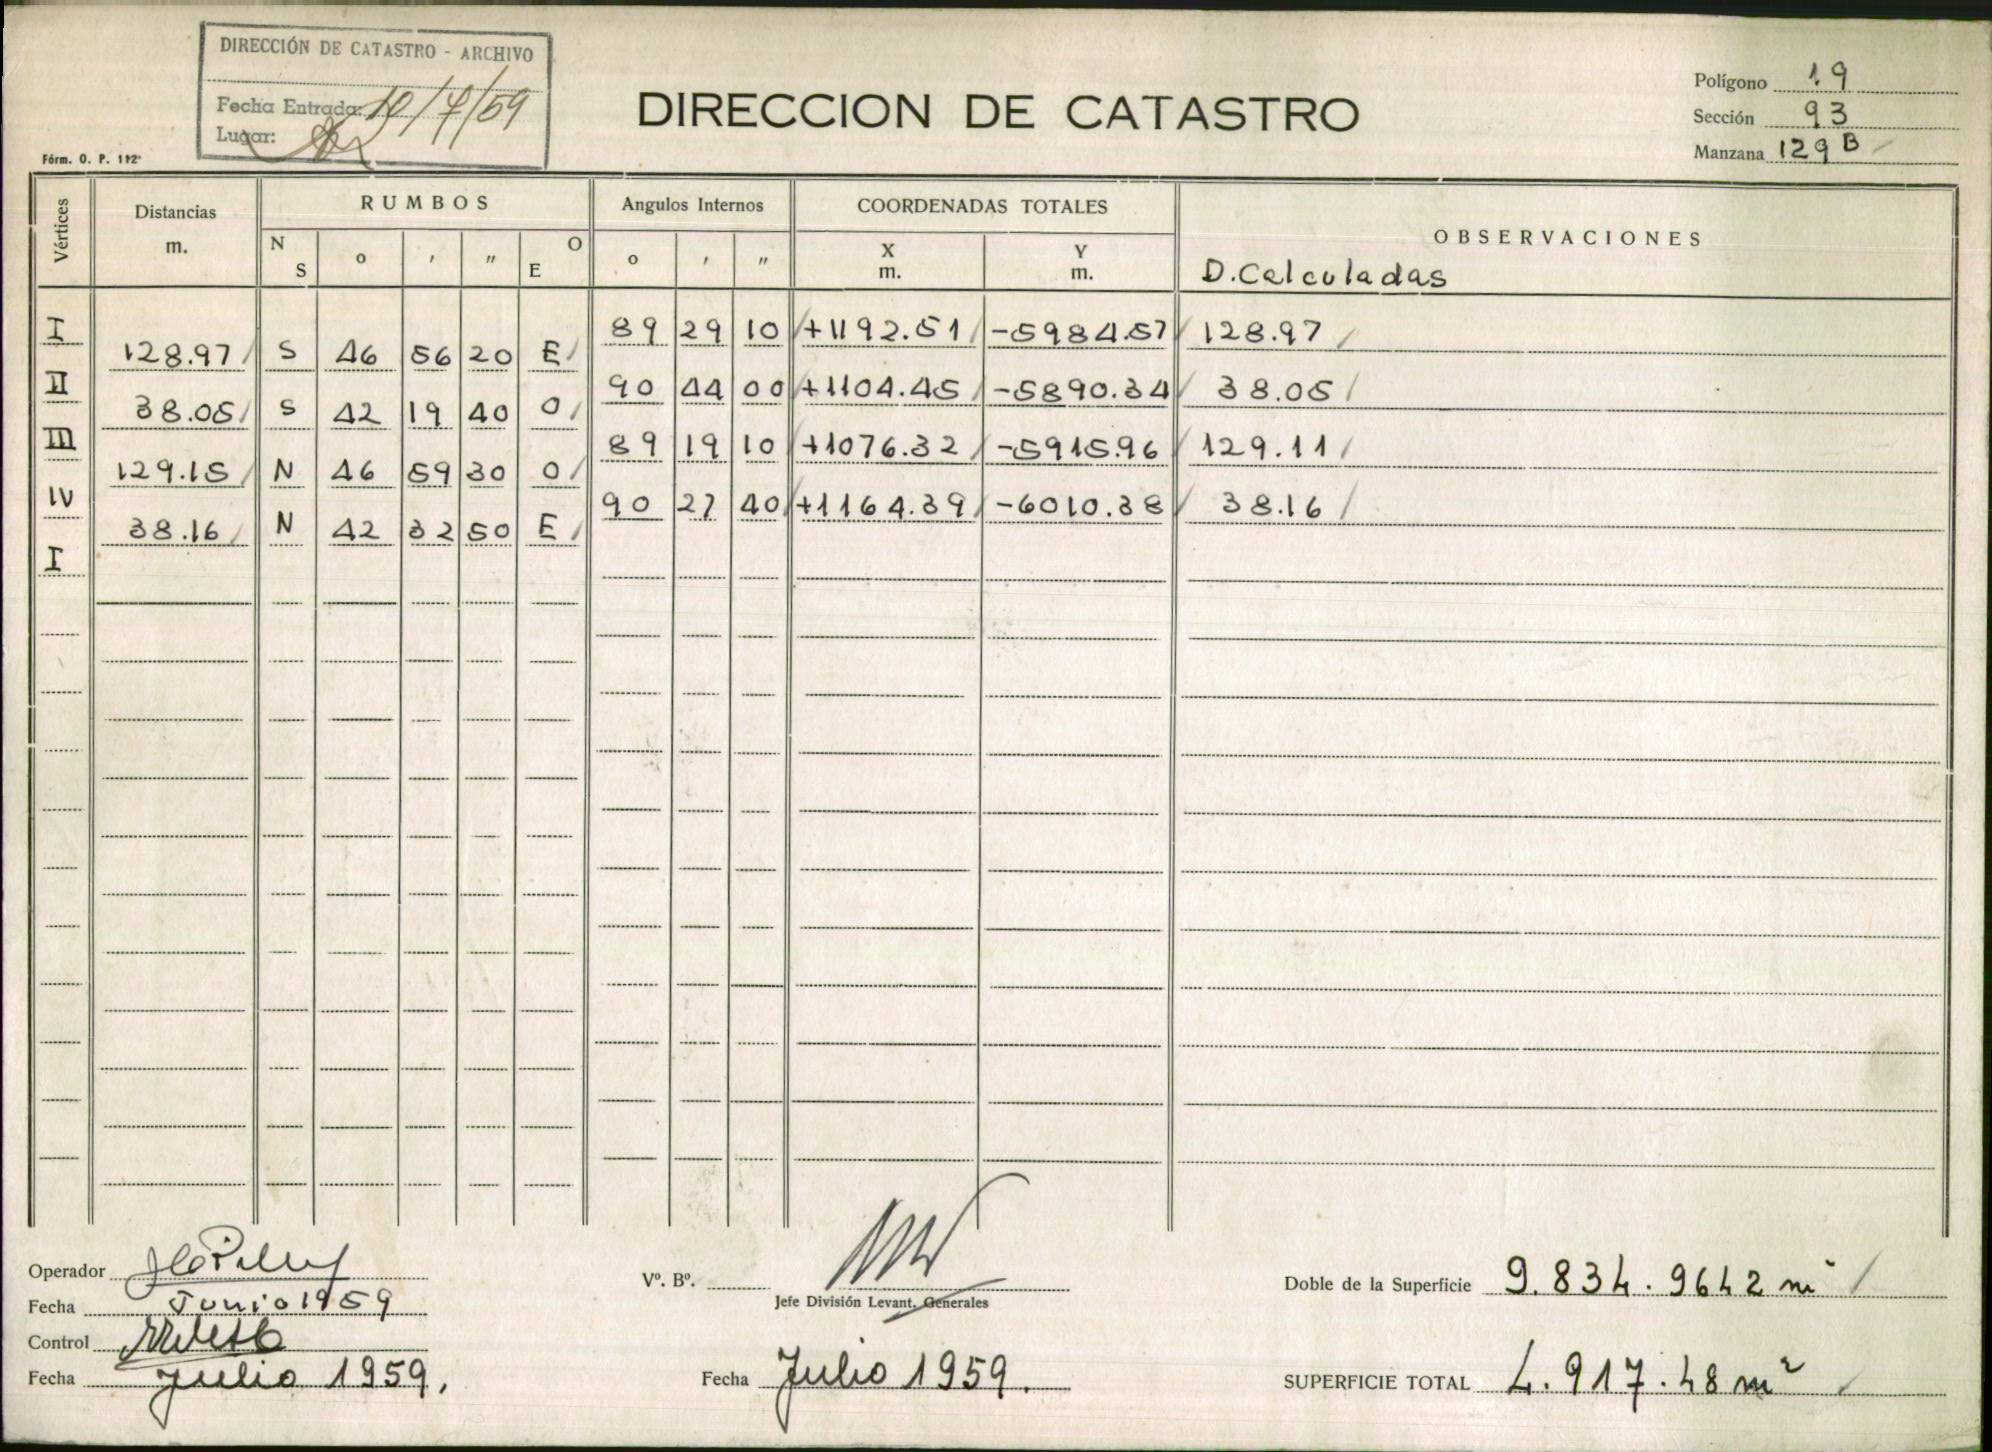 DIRECCIÓN DE CATASTRO - ARCHIVO
Fecha Entrada: 10/7/59
Lugar:
Fórm. O. P. 112
DIRECCION DE CATASTRO
Polígono 19
Sección 93
Manzana 129 B
Vértices Distancias m. RUMBOS Angulos Internos COORDENADAS TOTALES OBSERVACIONES
N S o ' " O E o ' " X m. Y m. D. Calculadas
I 89 29 10 +1192.51 -5984.57 128.97
128.97 S 46 56 20 E
II 90 44 00 +1104.45 -5890.34 38.05
38.05 S 42 19 40 O
III 89 19 10 +1076.32 -5915.96 129.11
129.15 N 46 59 30 O
IV 90 27 40 +1164.39 -6010.38 38.16
38.16 N 42 32 50 E
I
Operador
Fecha Junio 1959
Control
Fecha Julio 1959.
Vº. Bº.
Jefe División Levant. Generales
Fecha Julio 1959.
Doble de la Superficie 9.834.9642 m²
SUPERFICIE TOTAL 4.917.48 m²